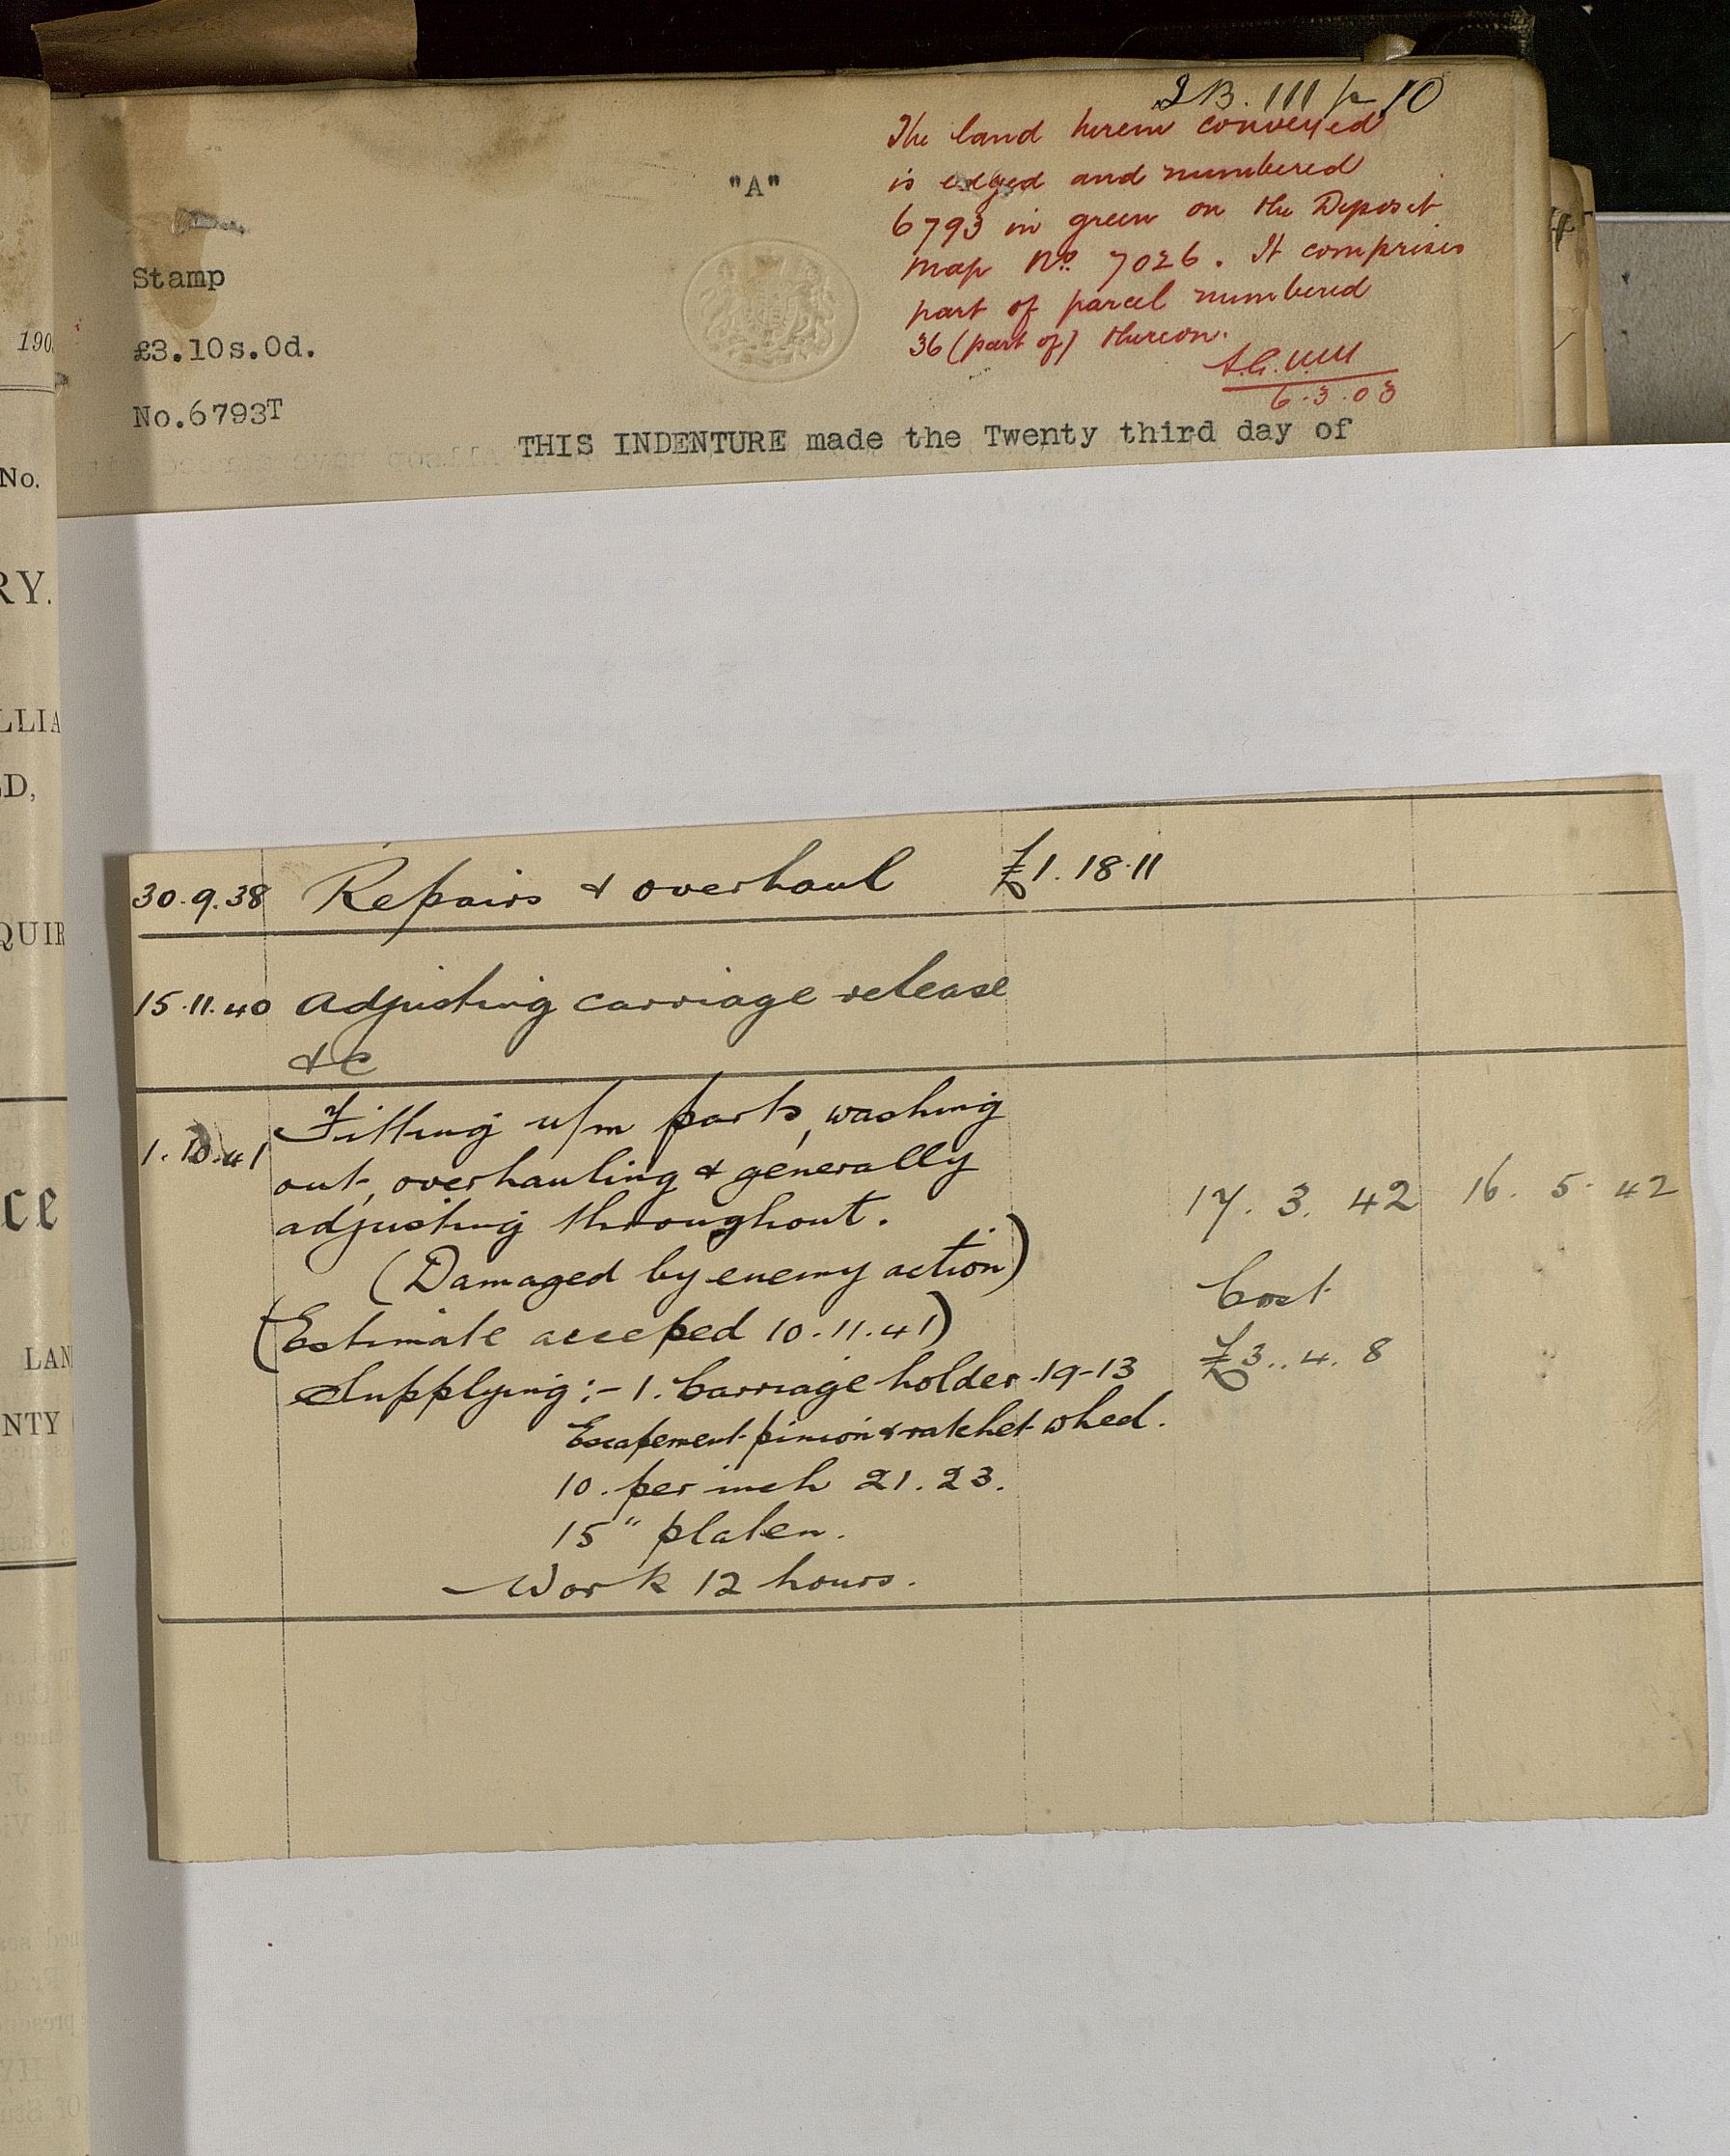 190
No.
RY.
LLIA
D,
QUIR
ce
LAN
NTY
2B. 111 p 10
The land herein conveyed
is edged and numbered
6793 in green on the Deposit
map No. 7026. It comprises
part of parcel numbered
36 (part of) thereon.
6.3.03
"A"
Stamp
£3.10s.0d.
No.6793T
THIS INDENTURE made the Twenty third day of
30.9.38 Repairs & overhaul £1.18.11
15.11.40 Adjusting carriage release
&c
1.10.41 Fitting u/m parts, washing
out, overhauling & generally
adjusting throughout. 17.3.42 16.5.42
(Damaged by enemy action) Cost
(Estimate acceped 10.11.41) £3..4.8
Supplying:- 1. Carriage holder 19-13
Escapement pinion & ratchet wheel.
10. per inch 21.23.
15" platen.
Work 12 hours.